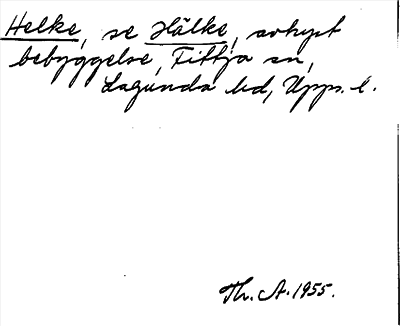 Helke, se Hälke, avhyst
bebyggelse, Fittja sn,
Lagunda hd, Upps. l.
Th. A. 1955.